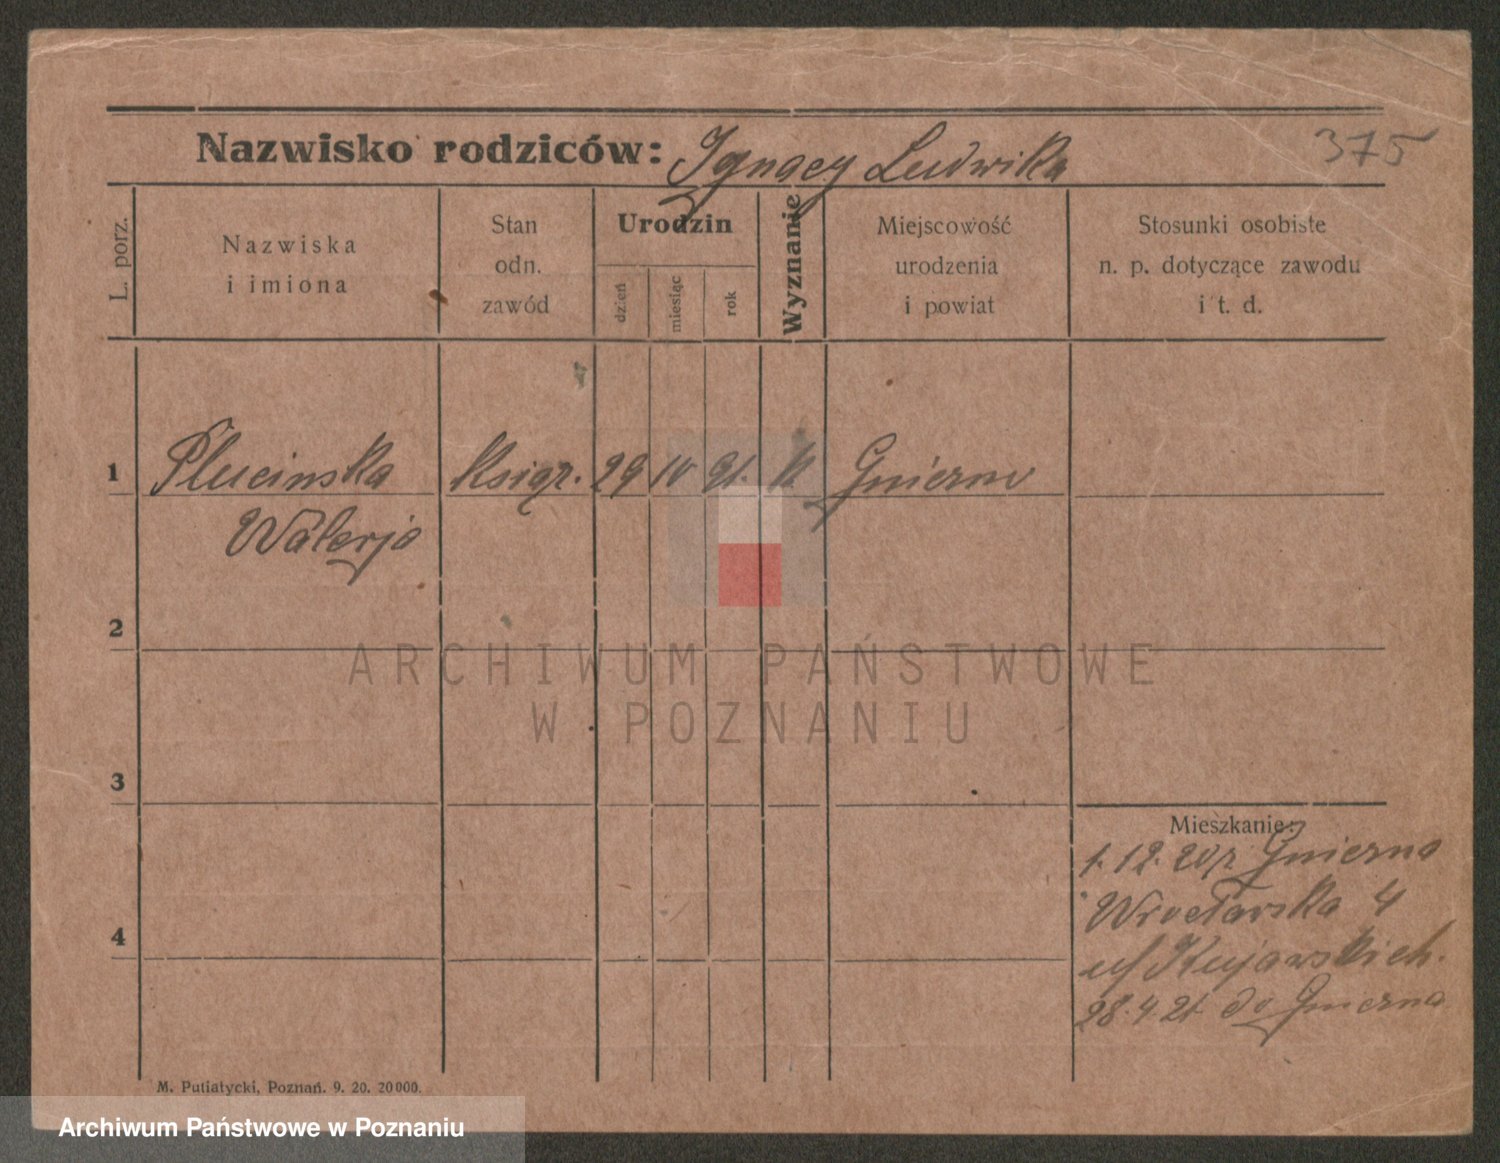 Nazwisko rodziców: Ignacy Ludwika 375
L. porz.
Nazwiska
i imiona
Stan
odn.
zawód
Urodzin
dzień
miesiąc
rok
Wyznanie
Miejscowość
urodzenia
i powiat
Stosunki osobiste
n. p. dotyczące zawodu
i t. d.
1 Plucinska Ksigr. 29 10 91. K Gniezno
Walerja
2
3
4
ARCHIWUM PAŃSTWOWE
W POZNANIU
Mieszkanie:
1. 12. 20 z Gniezna
Wrocławska 4
u/ Kujawskich.
28. 4 21 do Gniezna
M. Putiatycki, Poznań. 9. 20. 20000.
Archiwum Państwowe w Poznaniu